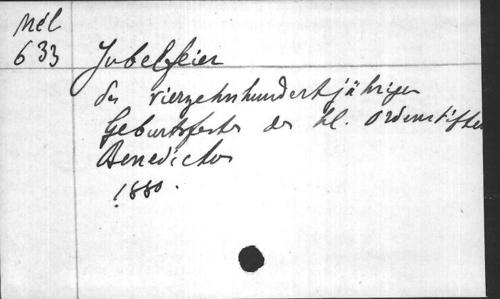 Mél
633
Jubelfeier
des vierzehnhundertjährigen
Geburtsfestes des hl. Ordensstifters
Benedictus
1880.